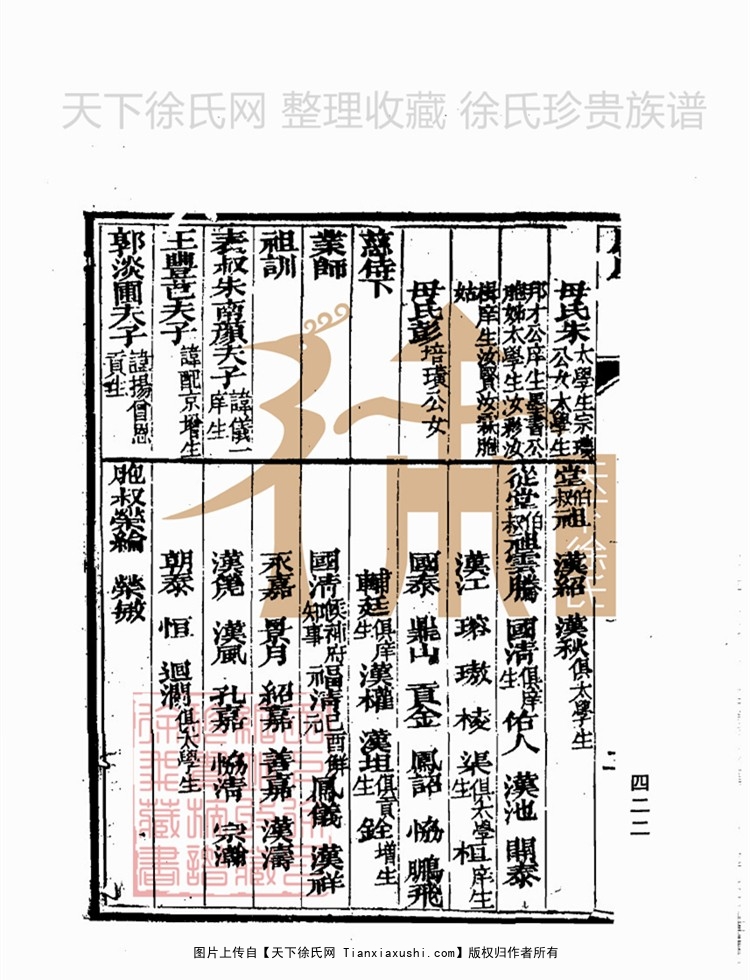 天下徐氏网 整理收藏 徐氏珍贵族谱
母氏朱 太學生宗瓊公女太學生
邦才公庠生墨書公
胞姊太學生女彩汝
模庠生汝賢汝霖胞
姑
母氏彭 培璜公女
慈侍下
業師
祖訓
表叔朱南顏夫子 諱儀一庠生
王豐芑夫子 諱配京增生
郭淡圃夫子 諱揚眉恩貢生
堂伯叔祖 漢紹 漢秋 俱太學生
從堂伯叔祖 雲騰 國清 俱庠生 佑人 漢池 開泰
漢江 瑢 璈 棱 渠 俱太學生 桓 庠生
國泰 鼎山 貢金 鳳詔 恊 鵬飛
輔廷 俱庠生 漢權 漢垣 俱貢生 銓 增生
國清 候補府知事 福清 己酉解元 鳳儀 漢祥
永嘉 景月 紹嘉 善嘉 漢濤
漢凫 漢風 孔嘉 恊清 宗瀚
朝泰 恒 迴瀾 俱太學生
胞叔 榮綸 榮敏
二
四二二
天下徐氏
图片上传自【天下徐氏网 Tianxiaxushi.com】版权归作者所有